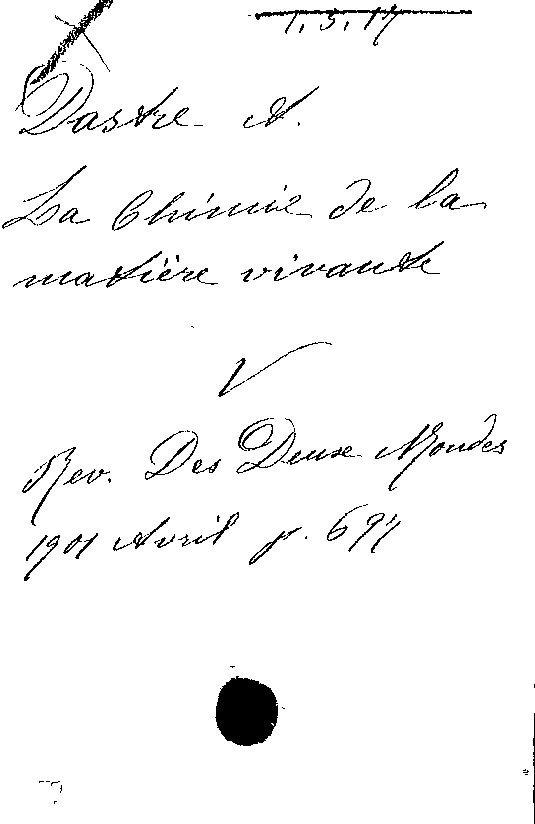 1.3.17
Dastre A.
La Chimie de la
matière vivante
V
Rev. Des Deux Mondes
1901 Avril p. 697